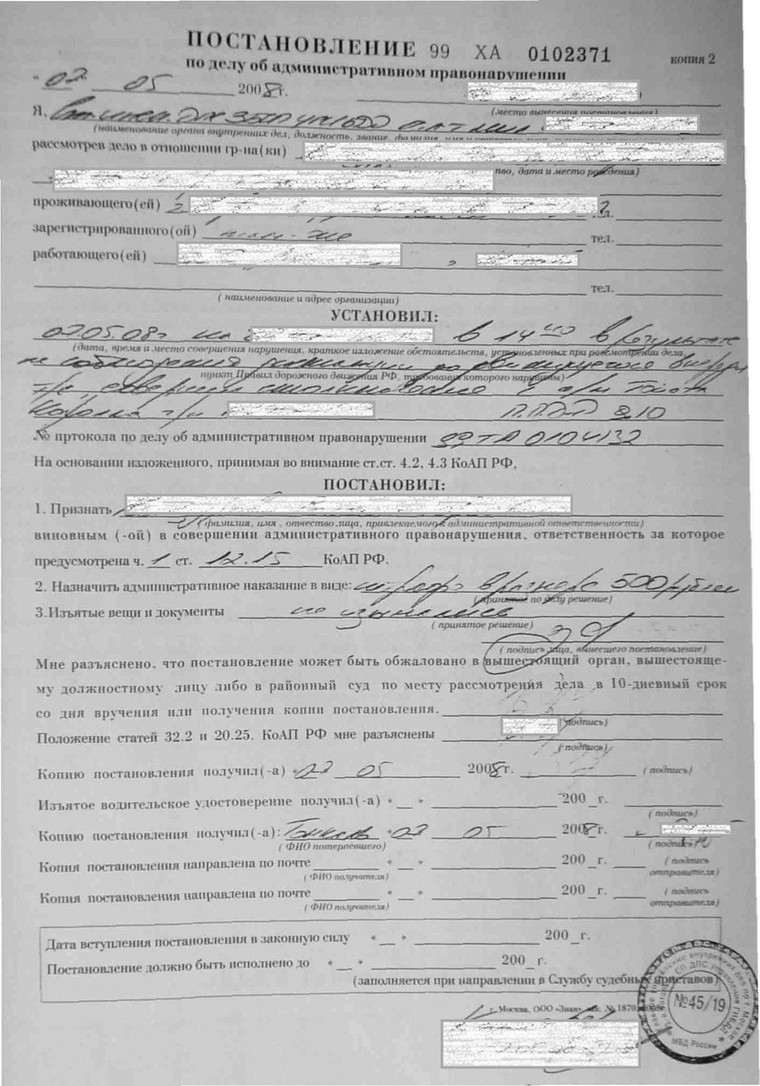 ПОСТАНОВЛЕНИЕ 99 ХА 0102371 копия 2
по делу об административном правонарушении
" 07 " 05 2008г.
(место вынесения постановления)
Я,
(наименование органа внутренних дел, должность, звание, фамилия, имя
рассмотрев дело в отношении гр-на(ки)
дата и место рождения)
проживающего(ей)
зарегистрированного(ой) тел.
работающего(ей)
тел.
( наименование и адрес организации)
УСТАНОВИЛ:
07.05.08г на в 14 в результате
(дата, время и место совершения нарушения, краткое изложение обстоятельств, установленных при рассмотрении дела,
не соблюдения дистанции до движущегося впереди
пункт Правил дорожного движения РФ, требования которого нарушены)
т/с совершил столкновение с а/м Тойота
Королла г/н П.ПДД 9.10
№ пртокола по делу об административном правонарушении 99ТА0104132
На основании изложенного, принимая во внимание ст.ст. 4.2, 4.3 КоАП РФ,
ПОСТАНОВИЛ:
1. Признать
(фамилия, имя , отчество лица, привлекаемого к административной ответственности)
виновным (-ой) в совершении административного правонарушения, ответственность за которое
предусмотрена ч. 1 ст. 12.15 КоАП РФ.
2. Назначить административное наказание в виде: штрафа в размере 500 рублей
(принятое по делу решение)
3.Изъятые вещи и документы не изымались
( принятое решение)
( подпись лица, вынесшего постановление)
Мне разъяснено, что постановление может быть обжаловано в вышестоящий орган, вышестояще-
му должностному лицу либо в районный суд по месту рассмотрения дела в 10-дневный срок
со дня вручения или получения копии постановления.
(подпись)
Положение статей 32.2 и 20.25. КоАП РФ мне разъяснены
( подпись)
Копию постановления получил(-а) " 07 05 2008г. ( подпись)
Изъятое водительское удостоверение получил(-а) " " 200 г.
( подпись)
Копию постановления получил(-а): 07 05 2008г.
( ФИО потерпевшего) ( подпись)
Копия постановления направлена по почте " " 200 г. ( подпись
( ФИО получателя) отправителя)
Копия постановления направлена по почте " " 200 г. ( подпись
( ФИО получателя) отправителя)
Дата вступления постановления в законную силу " " 200 г.
Постановление должно быть исполнено до " " 200 г.
(заполняется при направлении в Службу судебных приставов)
г. Москва, ООО «Знак», зак. № 1870
№45/19
МВД России